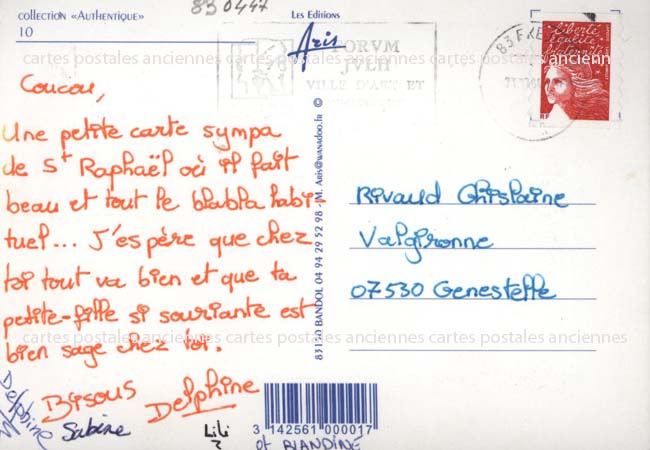 collection «Authentique»
10
83 0447
Les Editions
Aris
FORVM
JVLII
VILLE D'ART ET
83 FRE
Liberté
Egalité
Fraternité
RF
cartes postales anciennes cartes postales anciennes cartes postales anciennes
Coucou,
Une petite carte sympa
de St Raphaël où il fait
beau et tout le blabla habi-
tuel... J'espère que chez
toi tout va bien et que ta
petite-fille si souriante est
bien sage chez toi.
Bisous Delphine
Delphine
Sabine
Lili
et BLANDINE
83150 BANDOL 04 94 29 52 98 - M. Aris@wanadoo.fr ©
Rivaud Ghislaine
Valgironne
07530 Genestelle
cartes postales anciennes cartes postales anciennes cartes postales anciennes
3 142561 000017